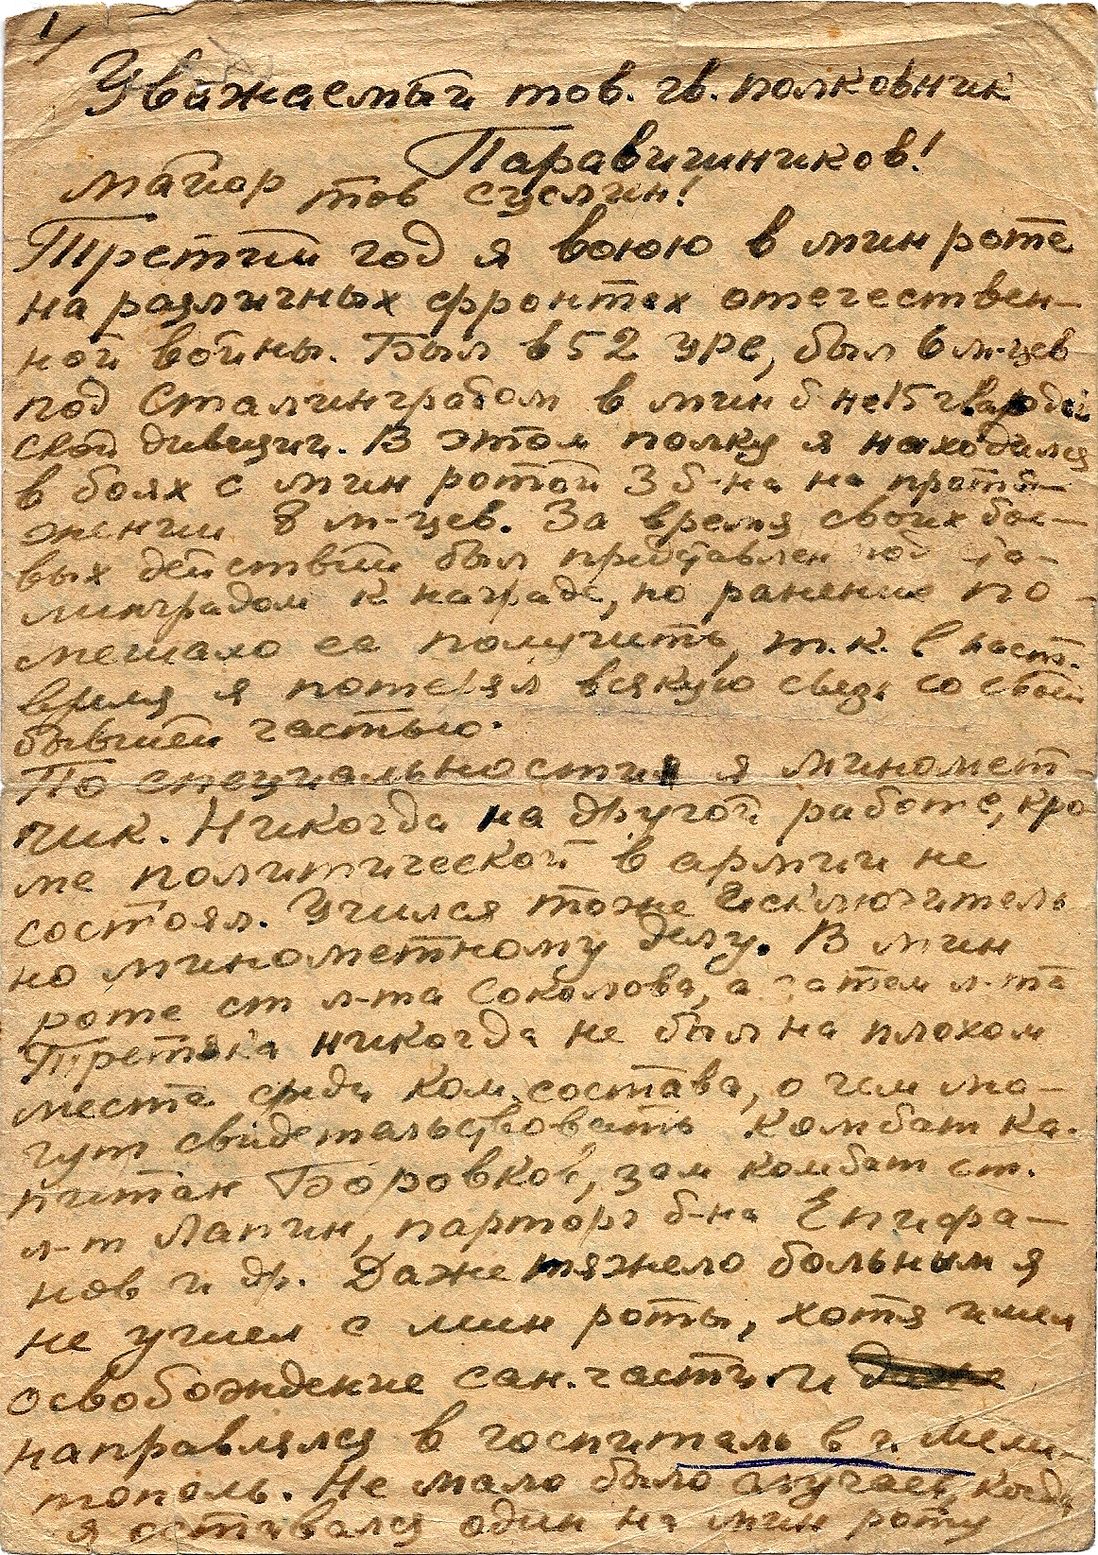 1/
Уважаемый тов. гв. полковник
Паравишников!
майор тов Суслин!
Третий год я воюю в мин роте
на различных фронтах отечествен-
ной войны. Был в 52 УРе, был 6 м-цев
под Сталинградом в мин б-не 15 гвардей
ской дивизии. В этом полку я находился
в боях с мин ротой 3 б-на на протя-
жении 8 м-цев. За время своих бое-
вых действий был представлен под Ста-
линградом к награде, но ранение по-
мешало ее получить, т.к. в наст.
время я потерял всякую связь со своей
бывшей частью.
По специальности я миномет-
чик. Никогда на другой работе, кро
ме политической в армии не
состоял. Учился тоже исключитель
но минометному делу. В мин
роте ст л-та Соколова, а затем л-та
Третяка никогда не был на плохом
месте среди ком. состава, о чем мо-
гут свидетельствовать комбат ка-
питан Боровков, зам комбат ст.
л-т Лапин, парторг б-на Епифа-
нов и др. Даже тяжело больным я
не ушел с мин роты, хотя имел
освобождение сан. части и даже
направлялся в госпиталь в г. Мели-
тополь. Не мало было случаев, когда
я оставался один на мин роту